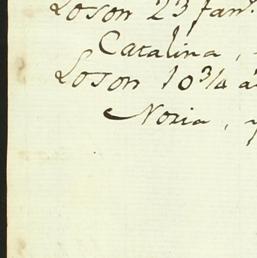 Loson 23 fan.
Catalina,
Loson 10 3/4 a
Noria, y